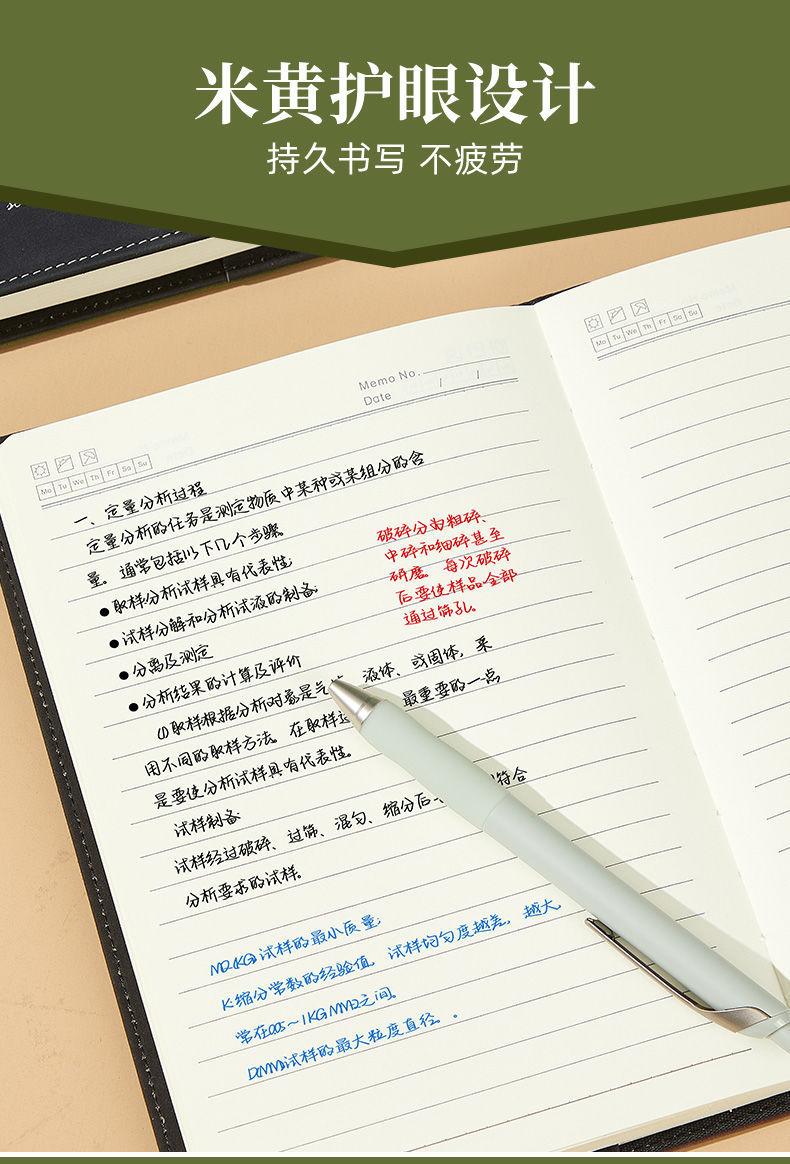 米黄护眼设计
持久书写 不疲劳
Memo No.
Date / /
Mo Tu We Th Fr Sa Su
Mo Tu We Th Fr Sa Su
一、定量分析过程
定量分析的任务是测定物质中某种或某组分的含
量。通常包括以下几个步骤。
●取样分析试样具有代表性;
●试样分解和分析试液的制备
●分离及测定
●分析结果的计算及评价
破碎分为粗碎、
中碎和细碎甚至
研磨。每次破碎
后要使样品全部
通过筛孔。
(1)取样根据分析对象是气 液体、或固体，采
用不同的取样方法。在取样 最重要的一点
是要使分析试样具有代表性。
试样制备
试样经过破碎、过筛、混匀、缩分后 符合
分析要求的试样。
试样的最小质量;
K缩分常数的经验值，试样均匀度越差，越大，
常在 之间。
D(MM)试样的最大粒度直径。.